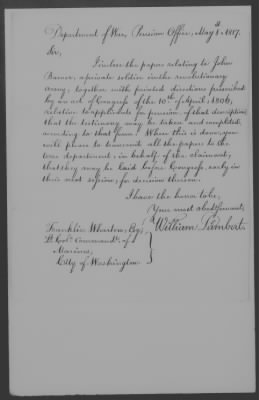 Department of War, Pension Office, May 1st 1817.
Sir,
I inclose the papers relating to John
a private soldier in the revolutionary
army, together with printed directions prescribed
by an act of Congress of the 10th of April, 1806,
relative to applicants for pension, of that description
that the testimony may be taken and completed,
according to that form. When this is done, you
will please to transmit all the papers to the
war department, in behalf of the claimant,
that they may be laid before Congress, early in
their next session, for decision thereon.
I have the honor to be,
Your most obedt. servant,
William Lambert.
Franklin Wharton, Esq.
Lt. Col. Commandt. of
Marines,
City of Washington